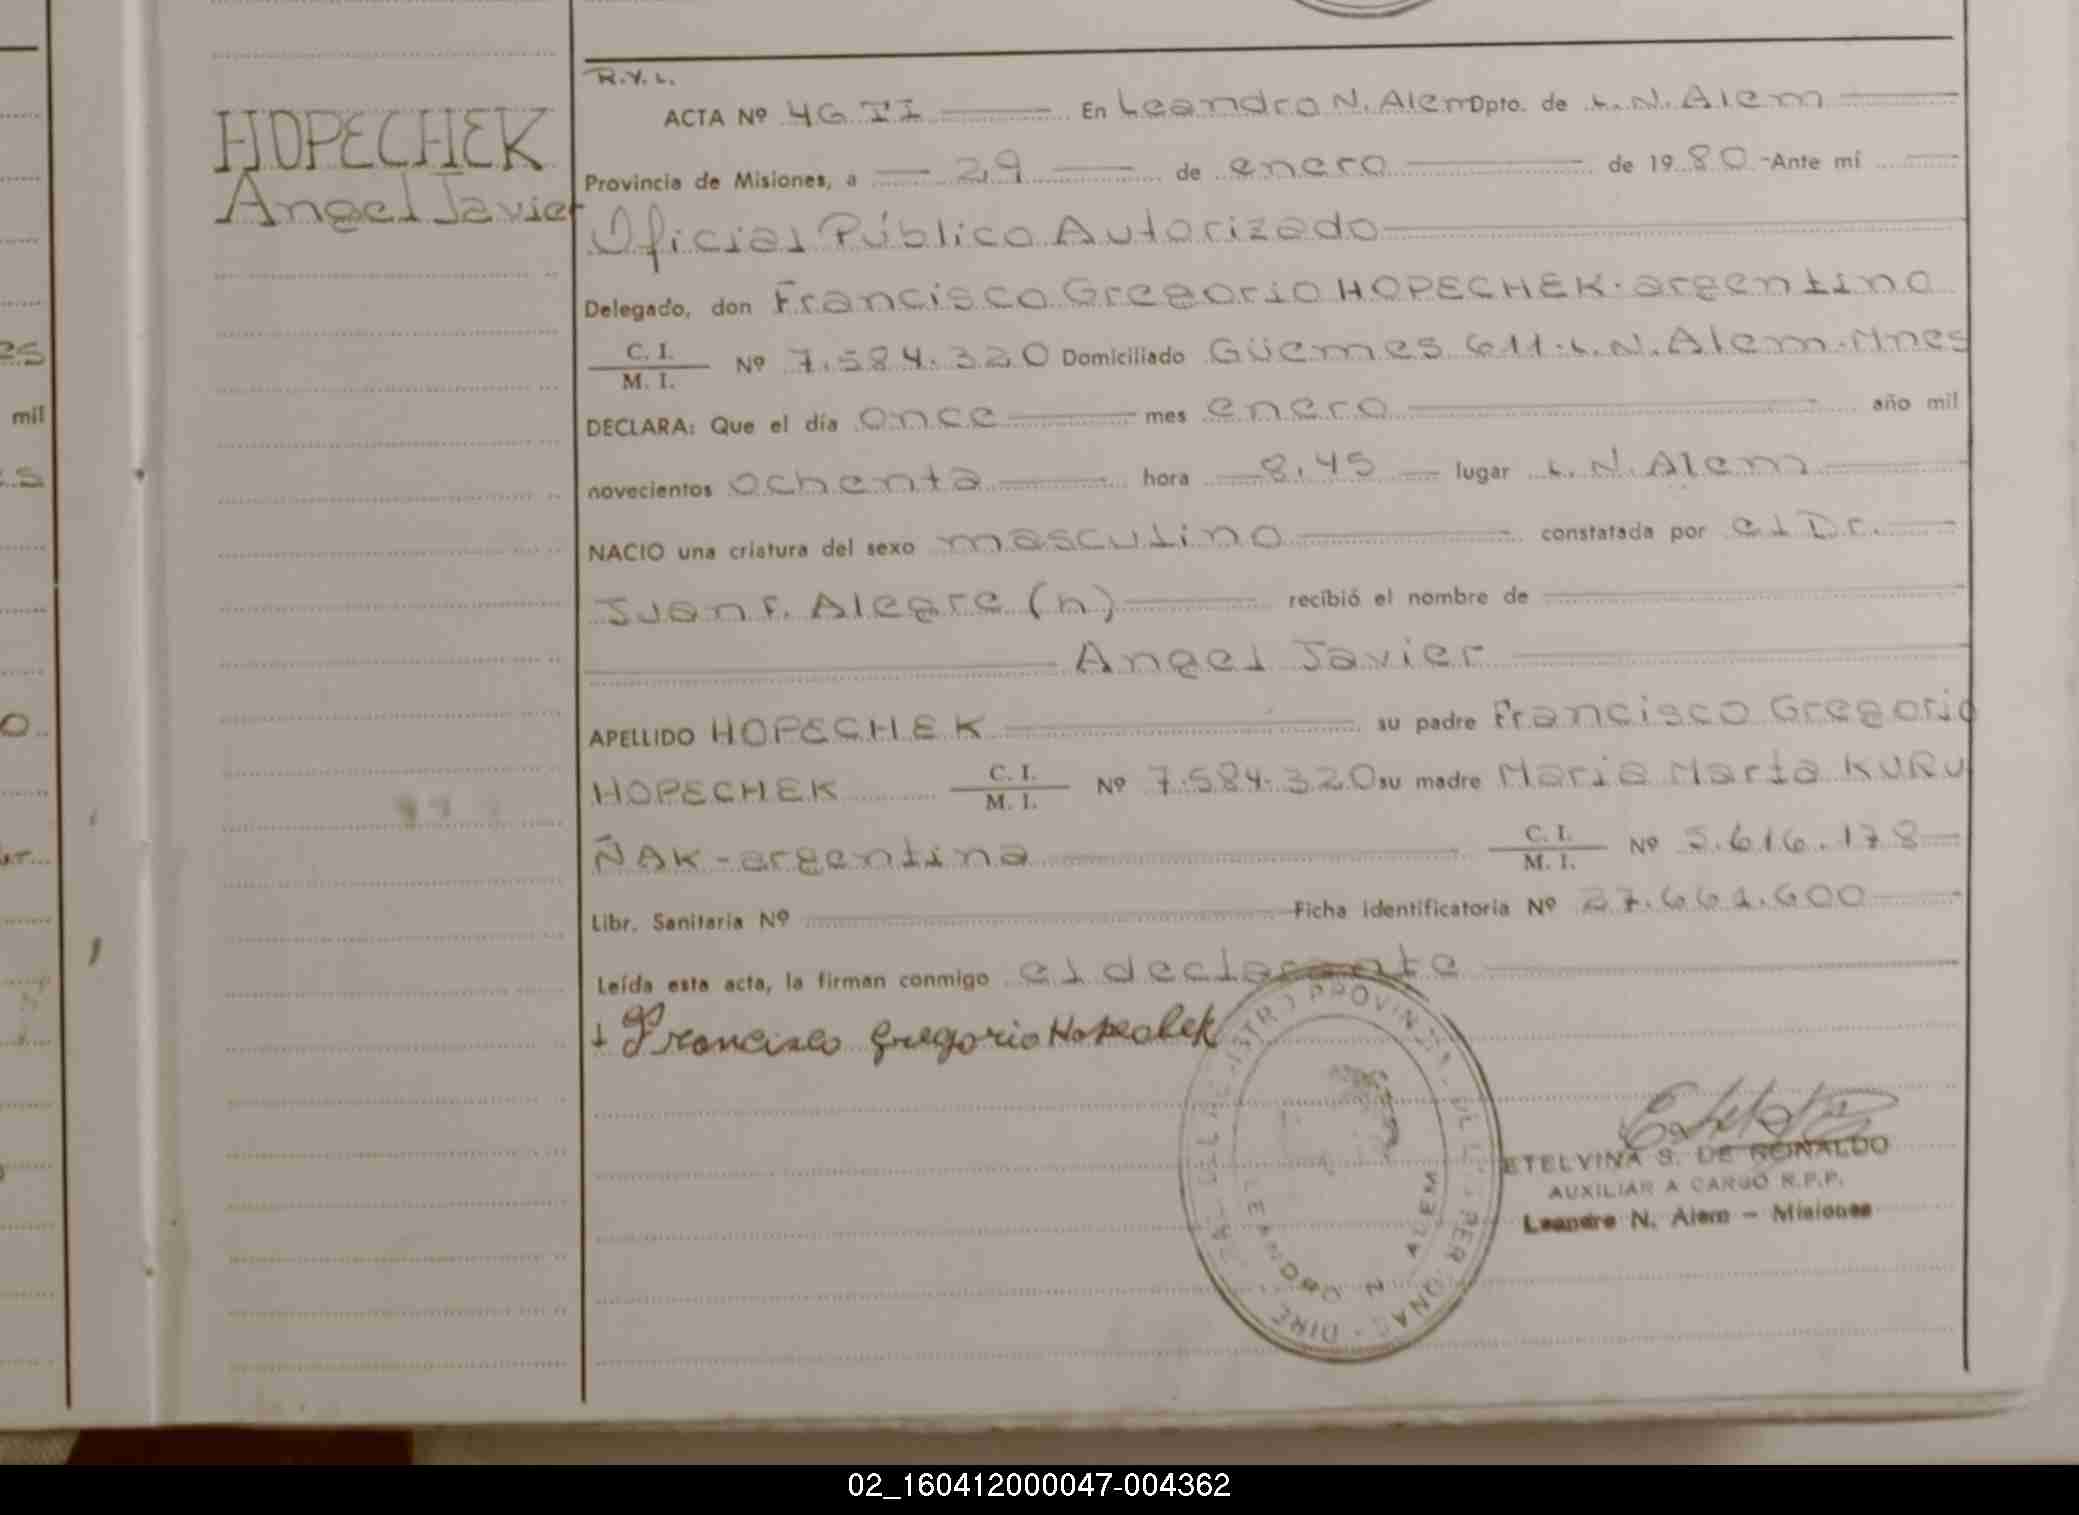 es
mil
s
o
HOPECHEK
Angel Javier
R.V.L.
ACTA Nº 46 TI En Leandro N. Alem Dpto. de L.N. Alem
Provincia de Misiones, a 29 de enero de 1980 - Ante mí
Oficial Público Autorizado
Delegado, don Francisco Gregorio HOPECHEK. argentino
C. I.
M. I. Nº 7.584.320 Domiciliado Güemes 611. L.N. Alem. Mnes
DECLARA: Que el día once mes enero año mil
novecientos ochenta hora 8,45 lugar L. N. Alem
NACIO una criatura del sexo masculino constatada por el Dr.
Juan F. Alegre (h) recibió el nombre de
Angel Javier
APELLIDO HOPECHEK su padre Francisco Gregorio
HOPECHEK C. I.
M. I. Nº 7.584.320 su madre Maria Marta KURU
ÑAK - argentina C. I.
M. I. Nº 5.616.178
Libr. Sanitaria Nº Ficha identificatoria Nº 27.661.600
Leída esta acta, la firman conmigo el declarante
Francisco Gregorio Hopechek
PROVINCIAL DE LAS PERSONAS - DIRE
LEANDRO N. ALEM
ETELVINA S. DE RONALDO
AUXILIAR A CARGO R.P.P.
Leandro N. Alem - Misiones
02_160412000047-004362